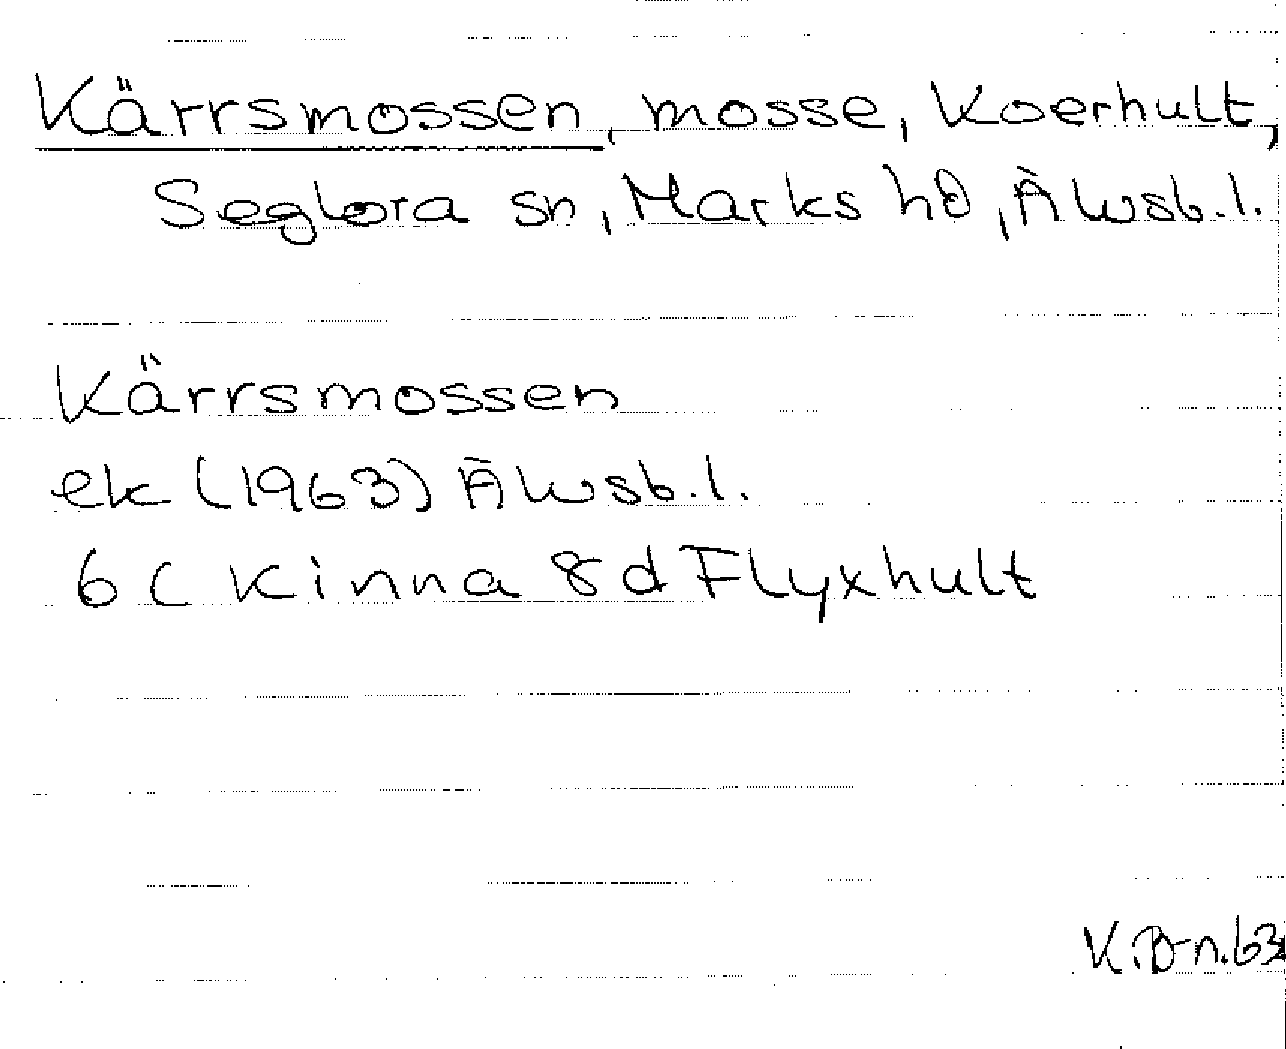 Kärrsmossen, mosse, Koerhult,
Seglora sn, Marks hd, Älvsb.l.
Kärrsmossen
ek (1963) Älvsb.l.
6 C Kinna 8d Flyxhult